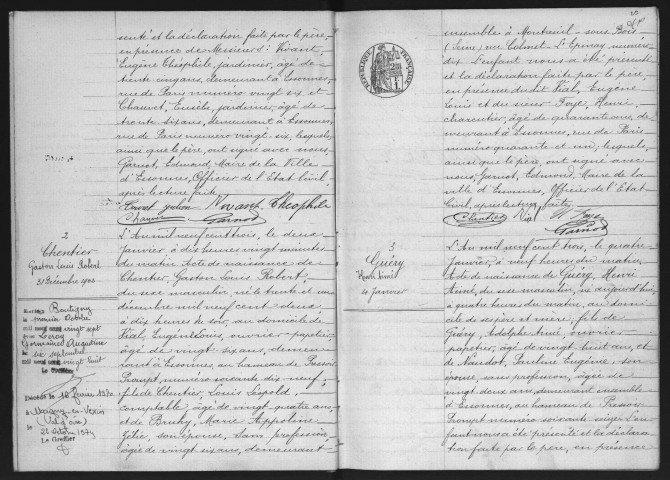 senté et la déclaration faite par le père,
en présence de Messieurs : Vivant,
Eugène Théophile, jardinier, âgé de
trente cinq ans, demeurant à Essonnes,
rue de Paris numéro vingt six et
Chauvet, Eusèbe, jardinier, âgé de
trente six ans, demeurant à Essonnes,
rue de Paris numéro vingt six, lesquels,
ainsi que le père, ont signé avec nous
Garnot, Edmond, Maire de la Ville
d'Essonnes, Officier de l'Etat Civil,
après lecture faite,
Vivant Théophile
Garnot
2
Chentier
Gaston Louis Robert
31 Décembre 1902
L'An mil neuf cent trois, le deux
Janvier à dix heures vingt minutes
du matin Acte de naissance de
Chentier, Gaston Louis Robert
du sexe masculin, né le trente et un
décembre mil neuf cent deux
à dix heures du soir, au domicile de
Vial, Eugène Louis, ouvrier papetier,
âgé de vingt six ans, demeu-
rant à Essonnes au hameau de Pressoir
Prompt, numéro soixante dix neuf,
fils de Chentier, Louis Léopold,
comptable, âgé de vingt quatre ans
et de Bruhy, Marie Appoline
son épouse, sans profession,
âgée de vingt six ans, demeurant
Marié à Boutigny
le premier Octobre
mil neuf cent vingt sept
avec Leroy
Germaine Augustine
le six septembre
mil neuf cent vingt huit
Le Greffier
Décédé le 18 février 1970
à Magny-en-Vexin
(Val d'Oise)
le 22 octobre 1974
Le Greffier
RÉPUBLIQUE FRANÇAISE
ensemble à Montreuil-sous-Bois
(Seine) rue Colmet L'Epinay numéro
dix. L'enfant nous a été présenté
et la déclaration faite par le père,
en présence du dit Vial, Eugène
Louis et du sieur Foye, Henri,
charpentier, âgé de quarante ans, de-
meurant à Essonnes, rue de Paris
numéro quarante et un ; lesquels,
ainsi que le père, ont signé avec
nous, Garnot, Edmond, Maire de la
ville d'Essonnes, Officier de l'Etat
Civil, après lecture faite,
Chentier Vial H Foye
Garnot
3
Guéry
Henri Aimé
4 Janvier
L'An mil neuf cent trois, le quatre
Janvier, à neuf heures du matin,
Acte de naissance de Guéry, Henri
Aimé, du sexe masculin, né aujourd'hui,
à quatre heures du matin, au domi-
cile de ses père et mère, fils de
Guéry, Adolphe Aimé, ouvrier
papetier, âgé de vingt huit ans, et
de Naudot, Pauline Eugénie, son
épouse, sans profession, âgée de
vingt deux ans, demeurant ensemble
à Essonnes, au hameau de Pressoir
Prompt numéro soixante six. L'en-
fant nous a été présenté et la déclara-
tion faite par le père, en présence